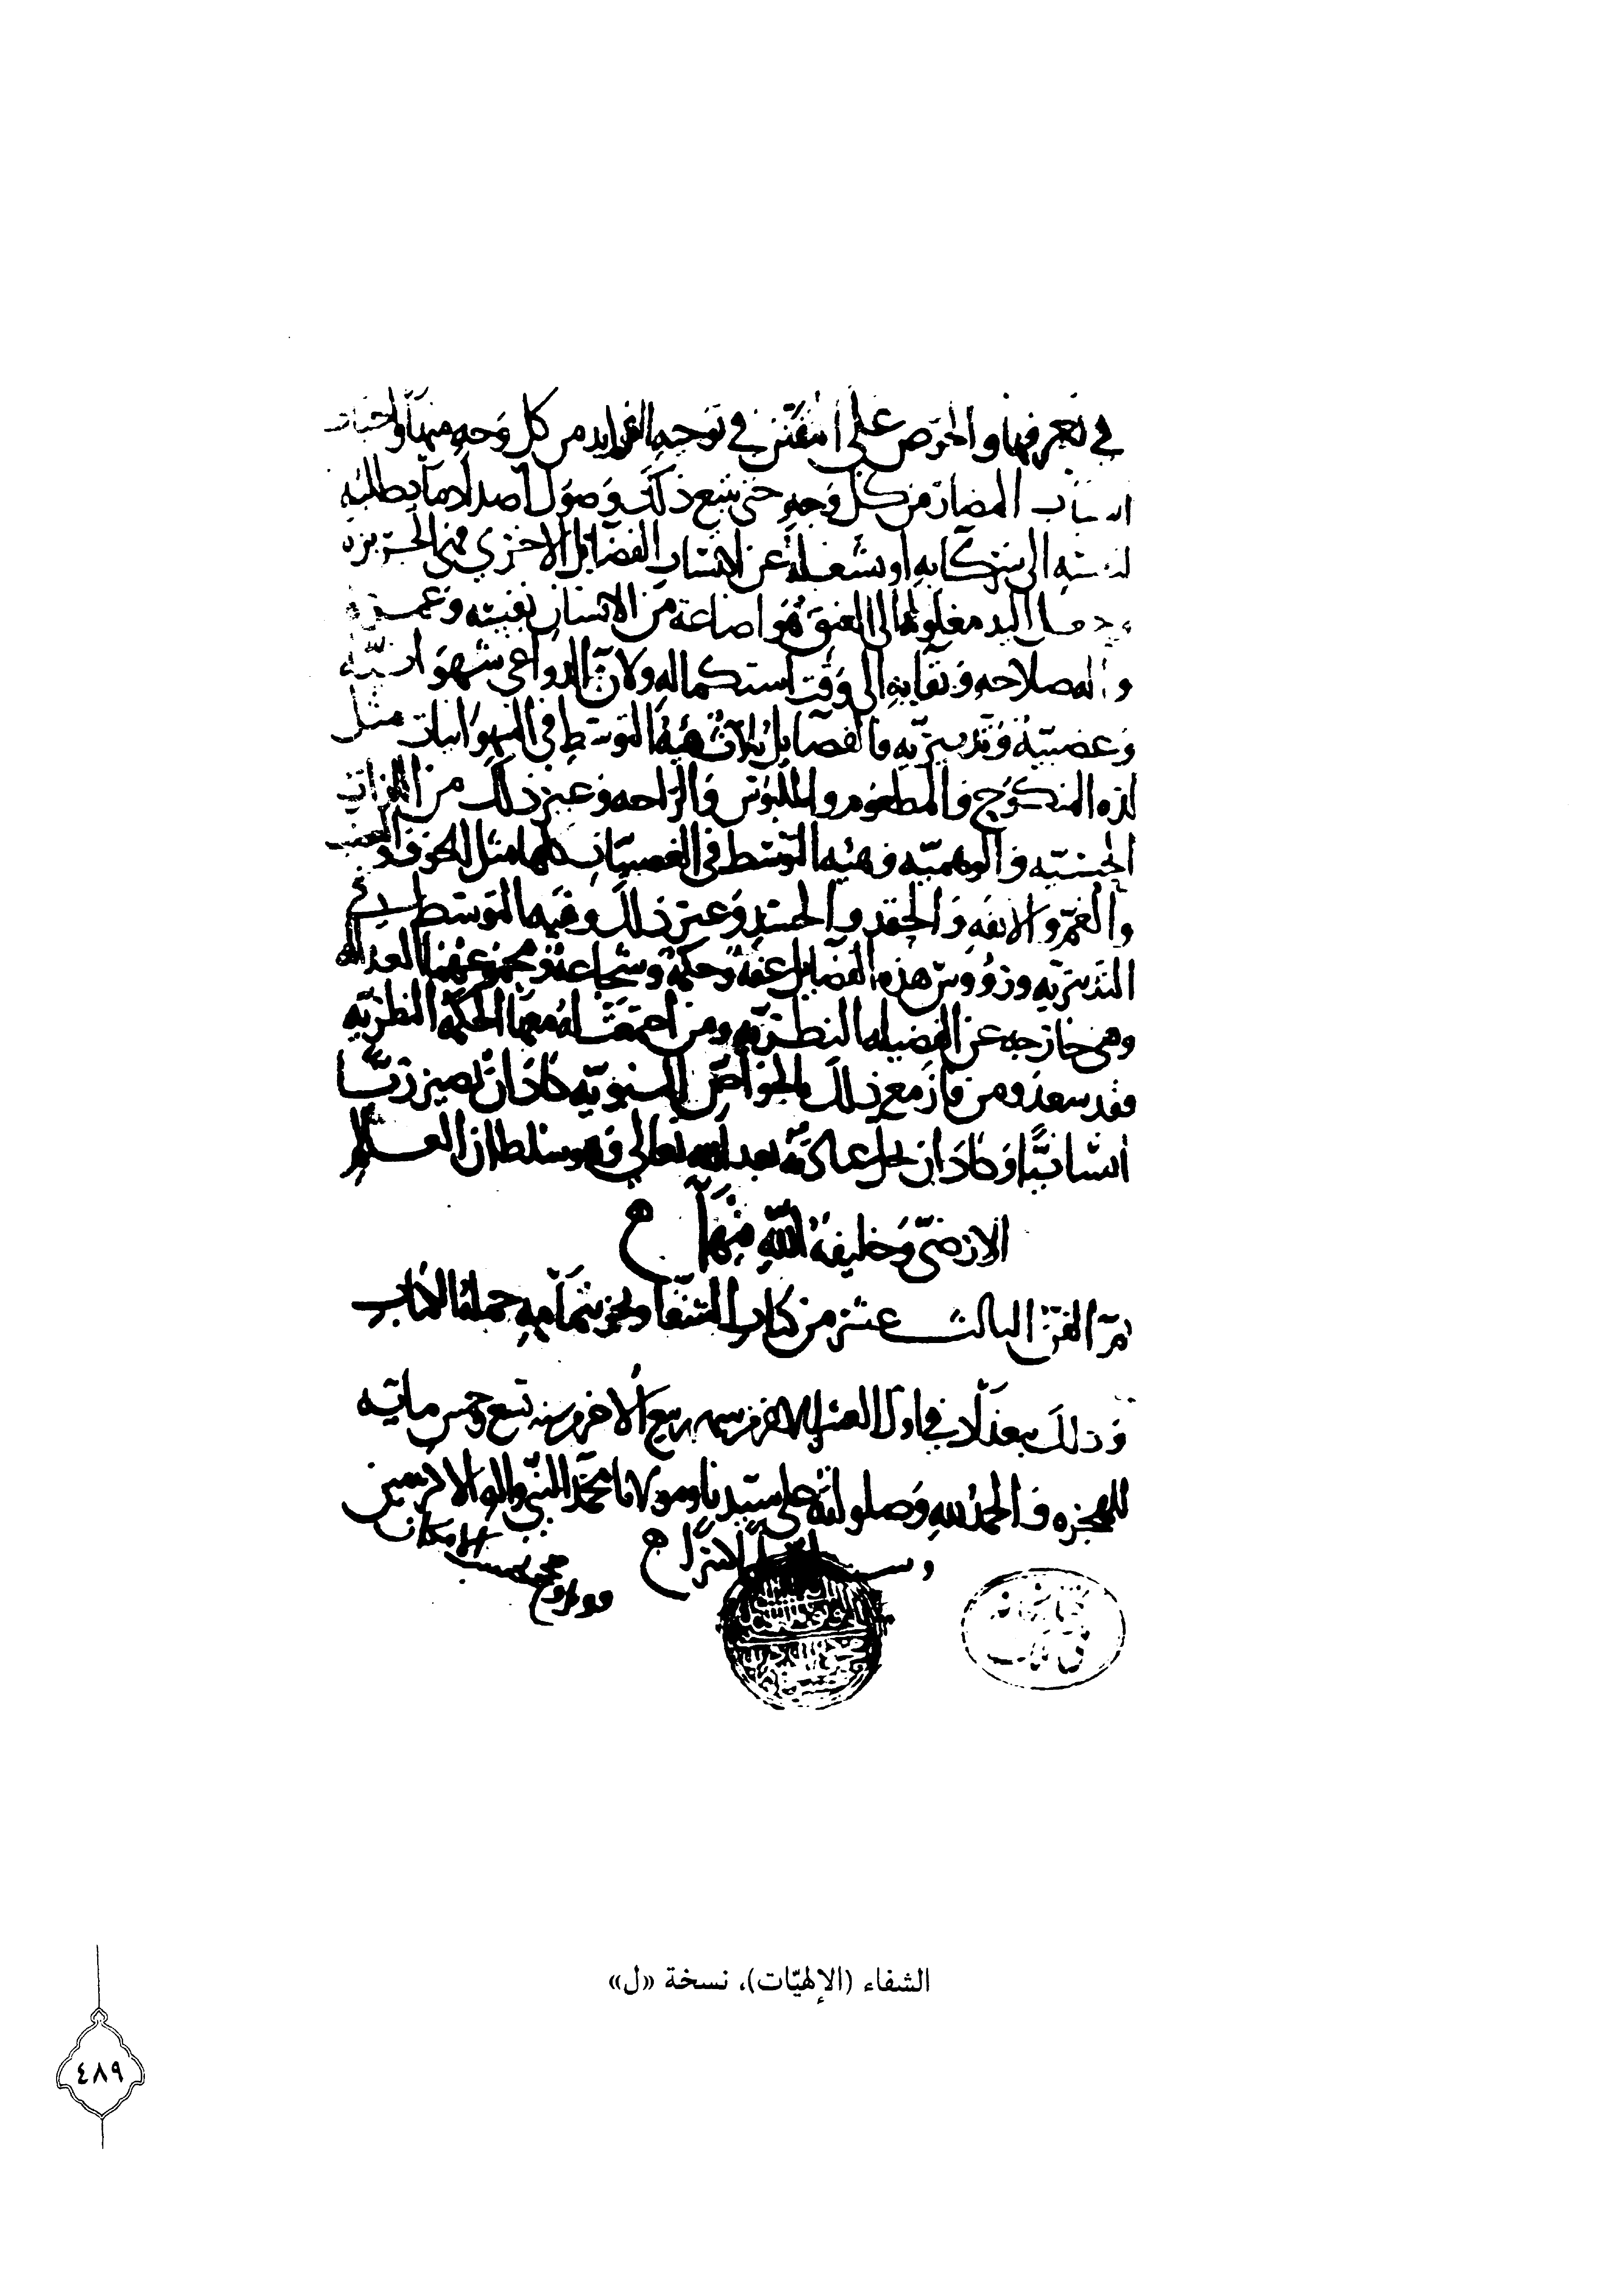 في تعرفها والحرص على التفنن في توجيه الفوايد من كل وجه منها واجتناب
اسباب المضار من كل وجه حتى يتبع ذلك وصول اضدادها يطلبه
لنفسه الى شركايه او يشغله عن اكتساب الفضايل الاخرى فهي الجربزة
وجعل اليد مغلولة الى العنق هو اضاعة من الانسان نفسه وعمره
واله صلاحه وبقايه الى وقت استكماله ولان الدواعي شهوانية
وغضبية وتدبيرية فالفضايل ثلاثة هيئة التوسط في الشهوانيات مثل
لذه المنكوح والمطعوم والملبوس والراحه وغير ذلك من اللذات
الحسيه والوهميه وهيئه التوسط في الغضبيات كلها مثل الخوف والغضب
والغم والانفه والحقد والحسد وغير ذلك وهيه التوسط في
التدبيريه ورووس هذه الفضايل عفة وحكمة وشجاعة ومجموعها العداله
وهي خارجه عن الفضيله النظريه ومن اجتمعت له معها الحكمة النظريه
فقد سعد ومن فاز مع ذلك بالخواص النبويه كاد ان يصير ربّا
انسانيّا وكاد ان تحل عبادته بعد الله تعالى وهو سلطان العالم
الارضي وخليفة الله فيها
تم الفن الثالث عشر من كتاب الشفا وتم بتمامه جملة الكتاب
وذلك ببغداد في اول العشر الاخر من شهر ربيع الاخر من سنه تسع وخمس مايه
للهجره والحمد لله وصلواته على سيدنا ومولانا محمد النبي واله الاكرمين
وسلم
الشفاء (الإلهيّات)، نسخة «ل»
٤٨٩